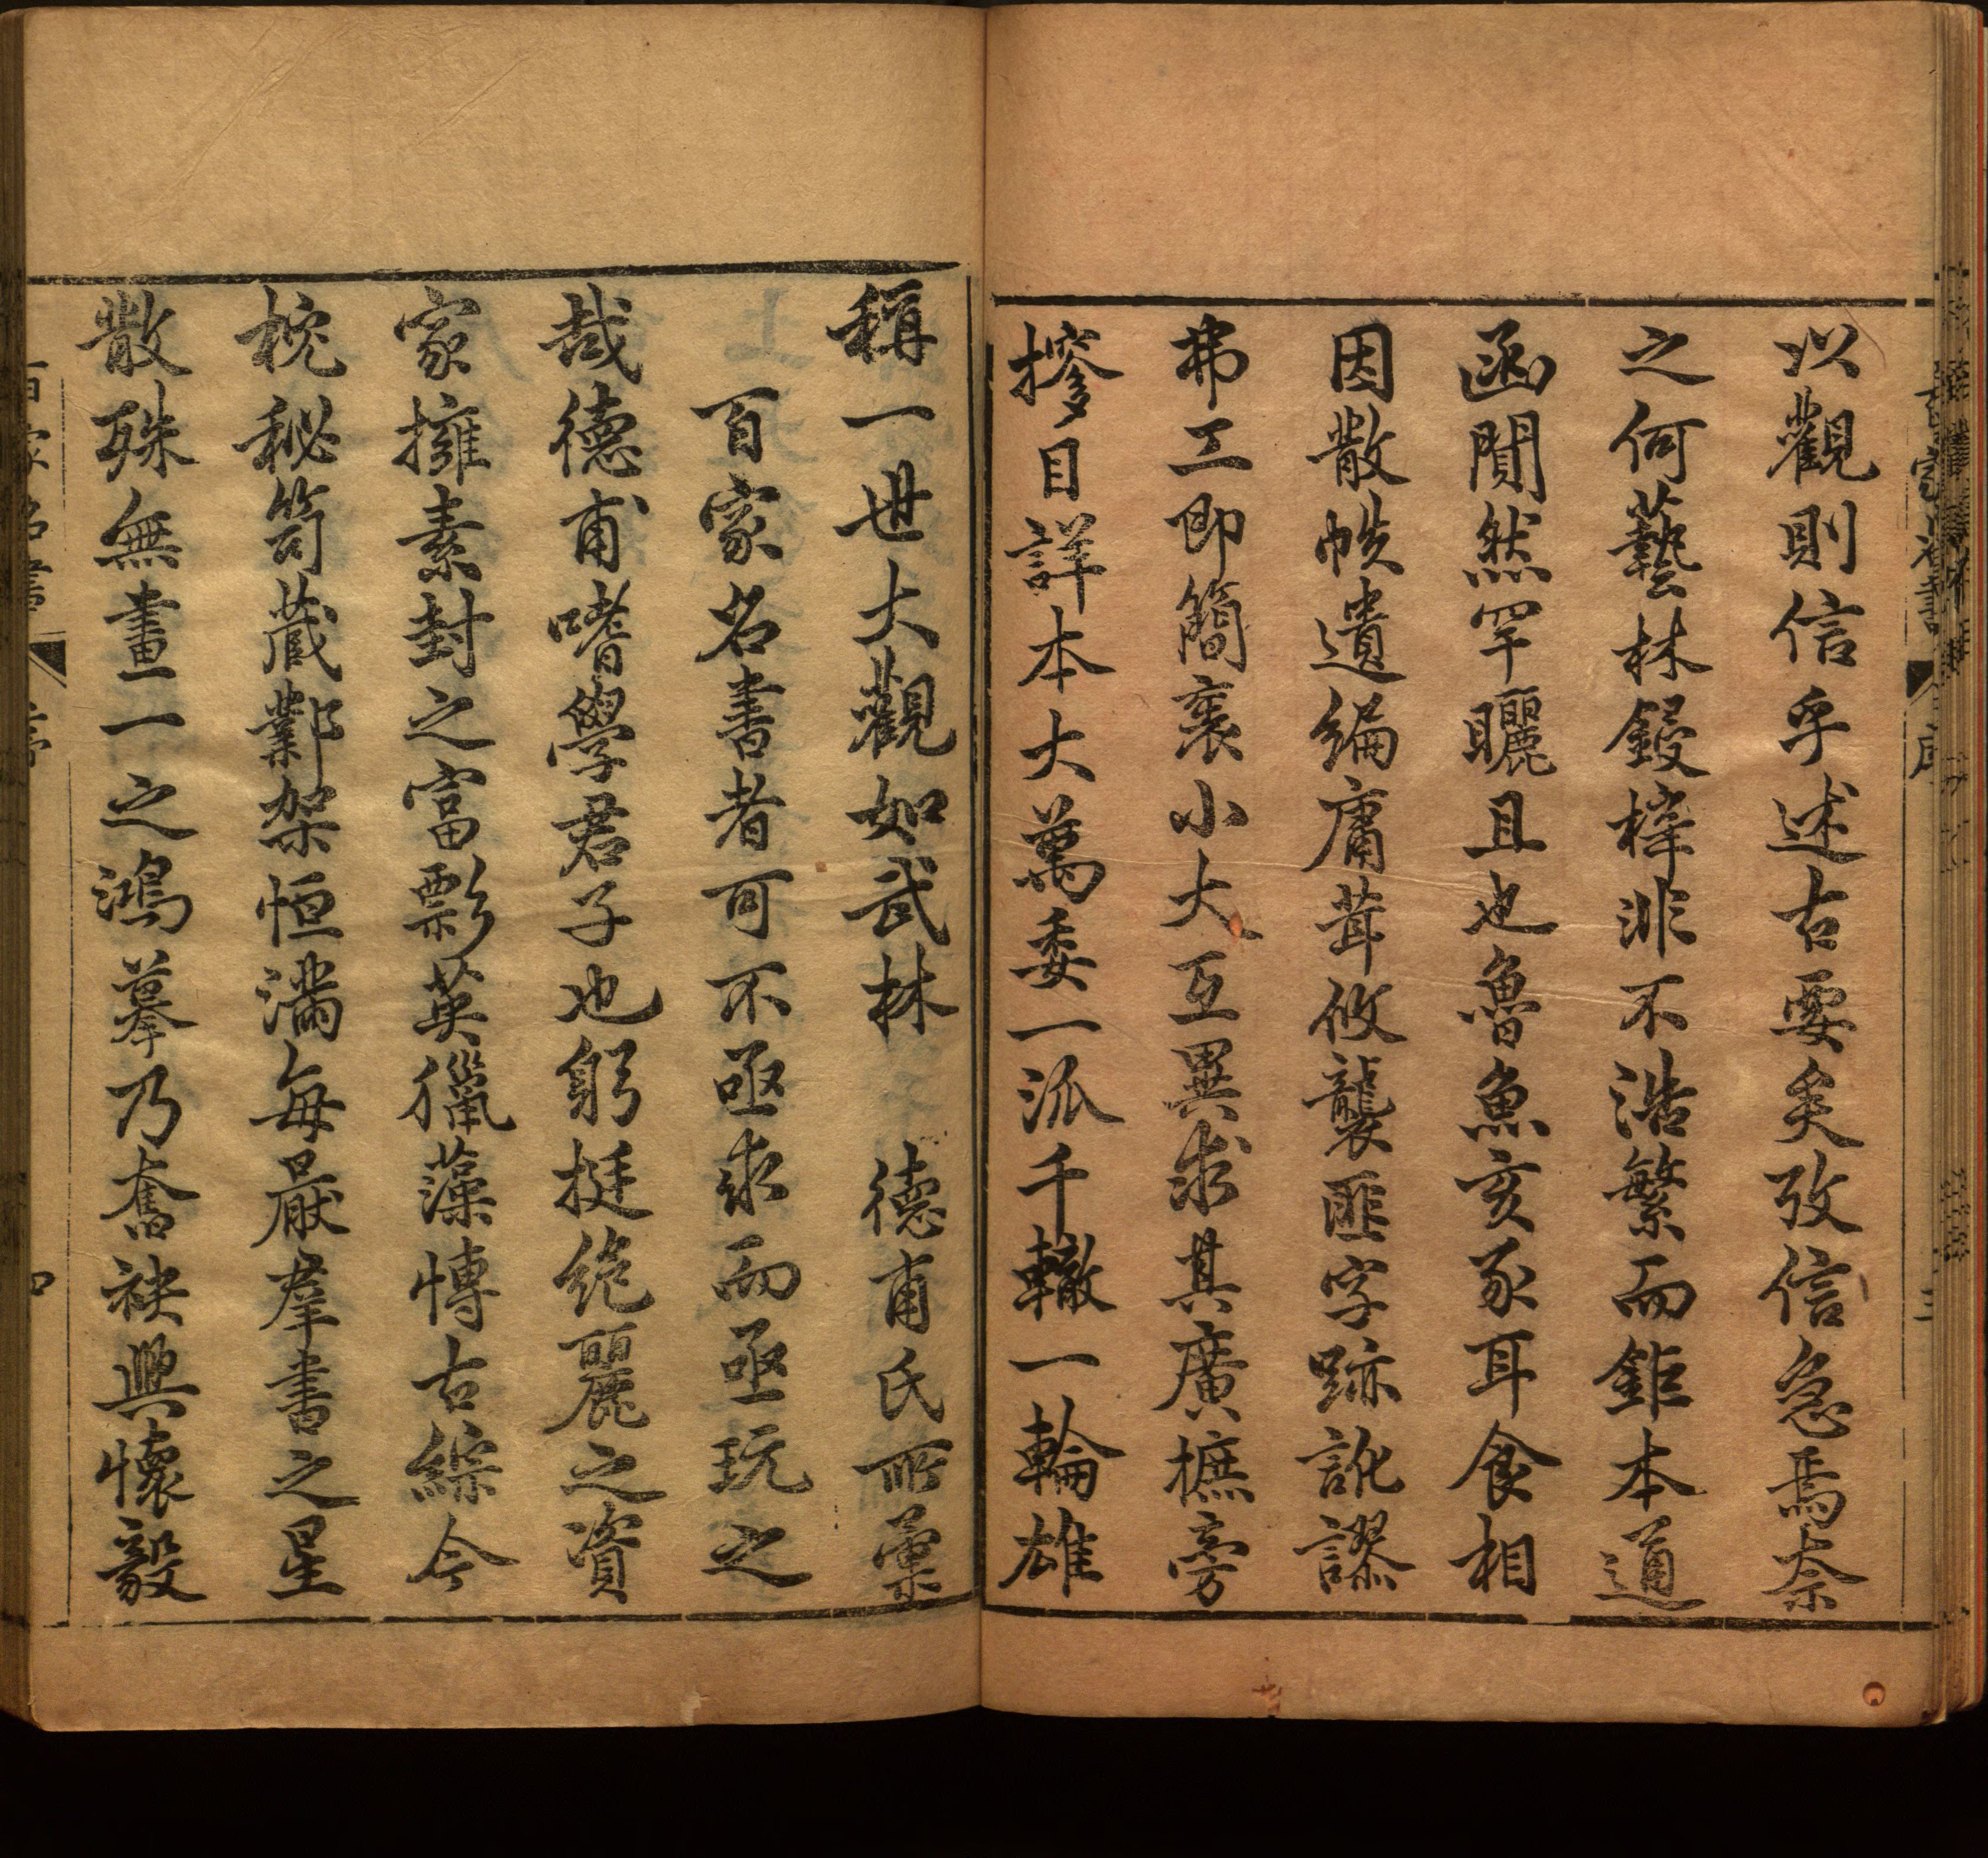 以觀則信乎述古要矣攷信急焉奈
之何藝林鋟梓非不浩繁而鉅本道
函閴然罕曬且也魯魚亥豕耳食相
因散帙遺編庸茸攸襲匪字跡訛謬
弗工即簡袠小大互異求其廣摭旁
摉目詳本大萬委一派千轍一輪雄
稱一世大觀如武林 德甫氏所彙
百家名書者可不亟求而亟玩之
哉德甫嗜學君子也躬挺絶麗之資
家擁素封之富彯英獵藻博古綜今
梡秘笥蔵鄴架恒滿每厭羣書之星
散殊無畫一之鴻摹乃奮袂興懷毅
百家名書 序 三
百家名書 序 四